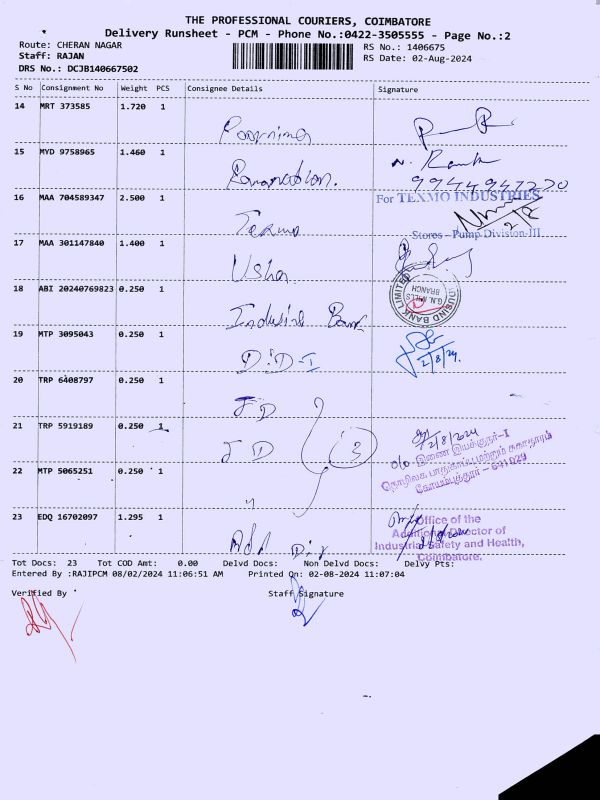 THE PROFESSIONAL COURIERS, COIMBATORE
Delivery Runsheet - PCM - Phone No.:0422-3505555 - Page No.:2
Route: CHERAN NAGAR
RS No.: 1406675
Staff: RAJAN
RS Date: 02-Aug-2024
DRS No.: DCJB140667502
S No Consignment No Weight PCS Consignee Details Signature
14 MRT 373585 1.720 1
Poornima
15 MYD 9758965 1.460 1
9944947220
16 MAA 704589347 2.500 1
For TEXMO INDUSTRIES
Texmo
Stores - Pump Division-III
17 MAA 301147840 1.400 1
Usha
18 ABI 20240769823 0.250 1
INDUSIND BANK LIMITED
G.N. MILLS
BRANCH
Indusind Bank
19 MTP 3095043 0.250 1
2/8/24.
20 TRP 6408797 0.250 1
JD
21 TRP 5919189 0.250 1
2/8/2024
JD
3
o/o இணை இயக்குநர்-I
தொழிலக பாதுகாப்பு மற்றும் சுகாதாரம்
கோயம்புத்தூர் - 641 029
22 MTP 5065251 0.250 1
23 EDQ 16702097 1.295 1
Office of the
Additional Director of
Industrial Safety and Health,
Coimbatore.
Add Dir
Tot Docs: 23 Tot COD Amt: 0.00 Delvd Docs: Non Delvd Docs: Delvy Pts:
Entered By :RAJIPCM 08/02/2024 11:06:51 AM Printed On: 02-08-2024 11:07:04
Verified By Staff Signature